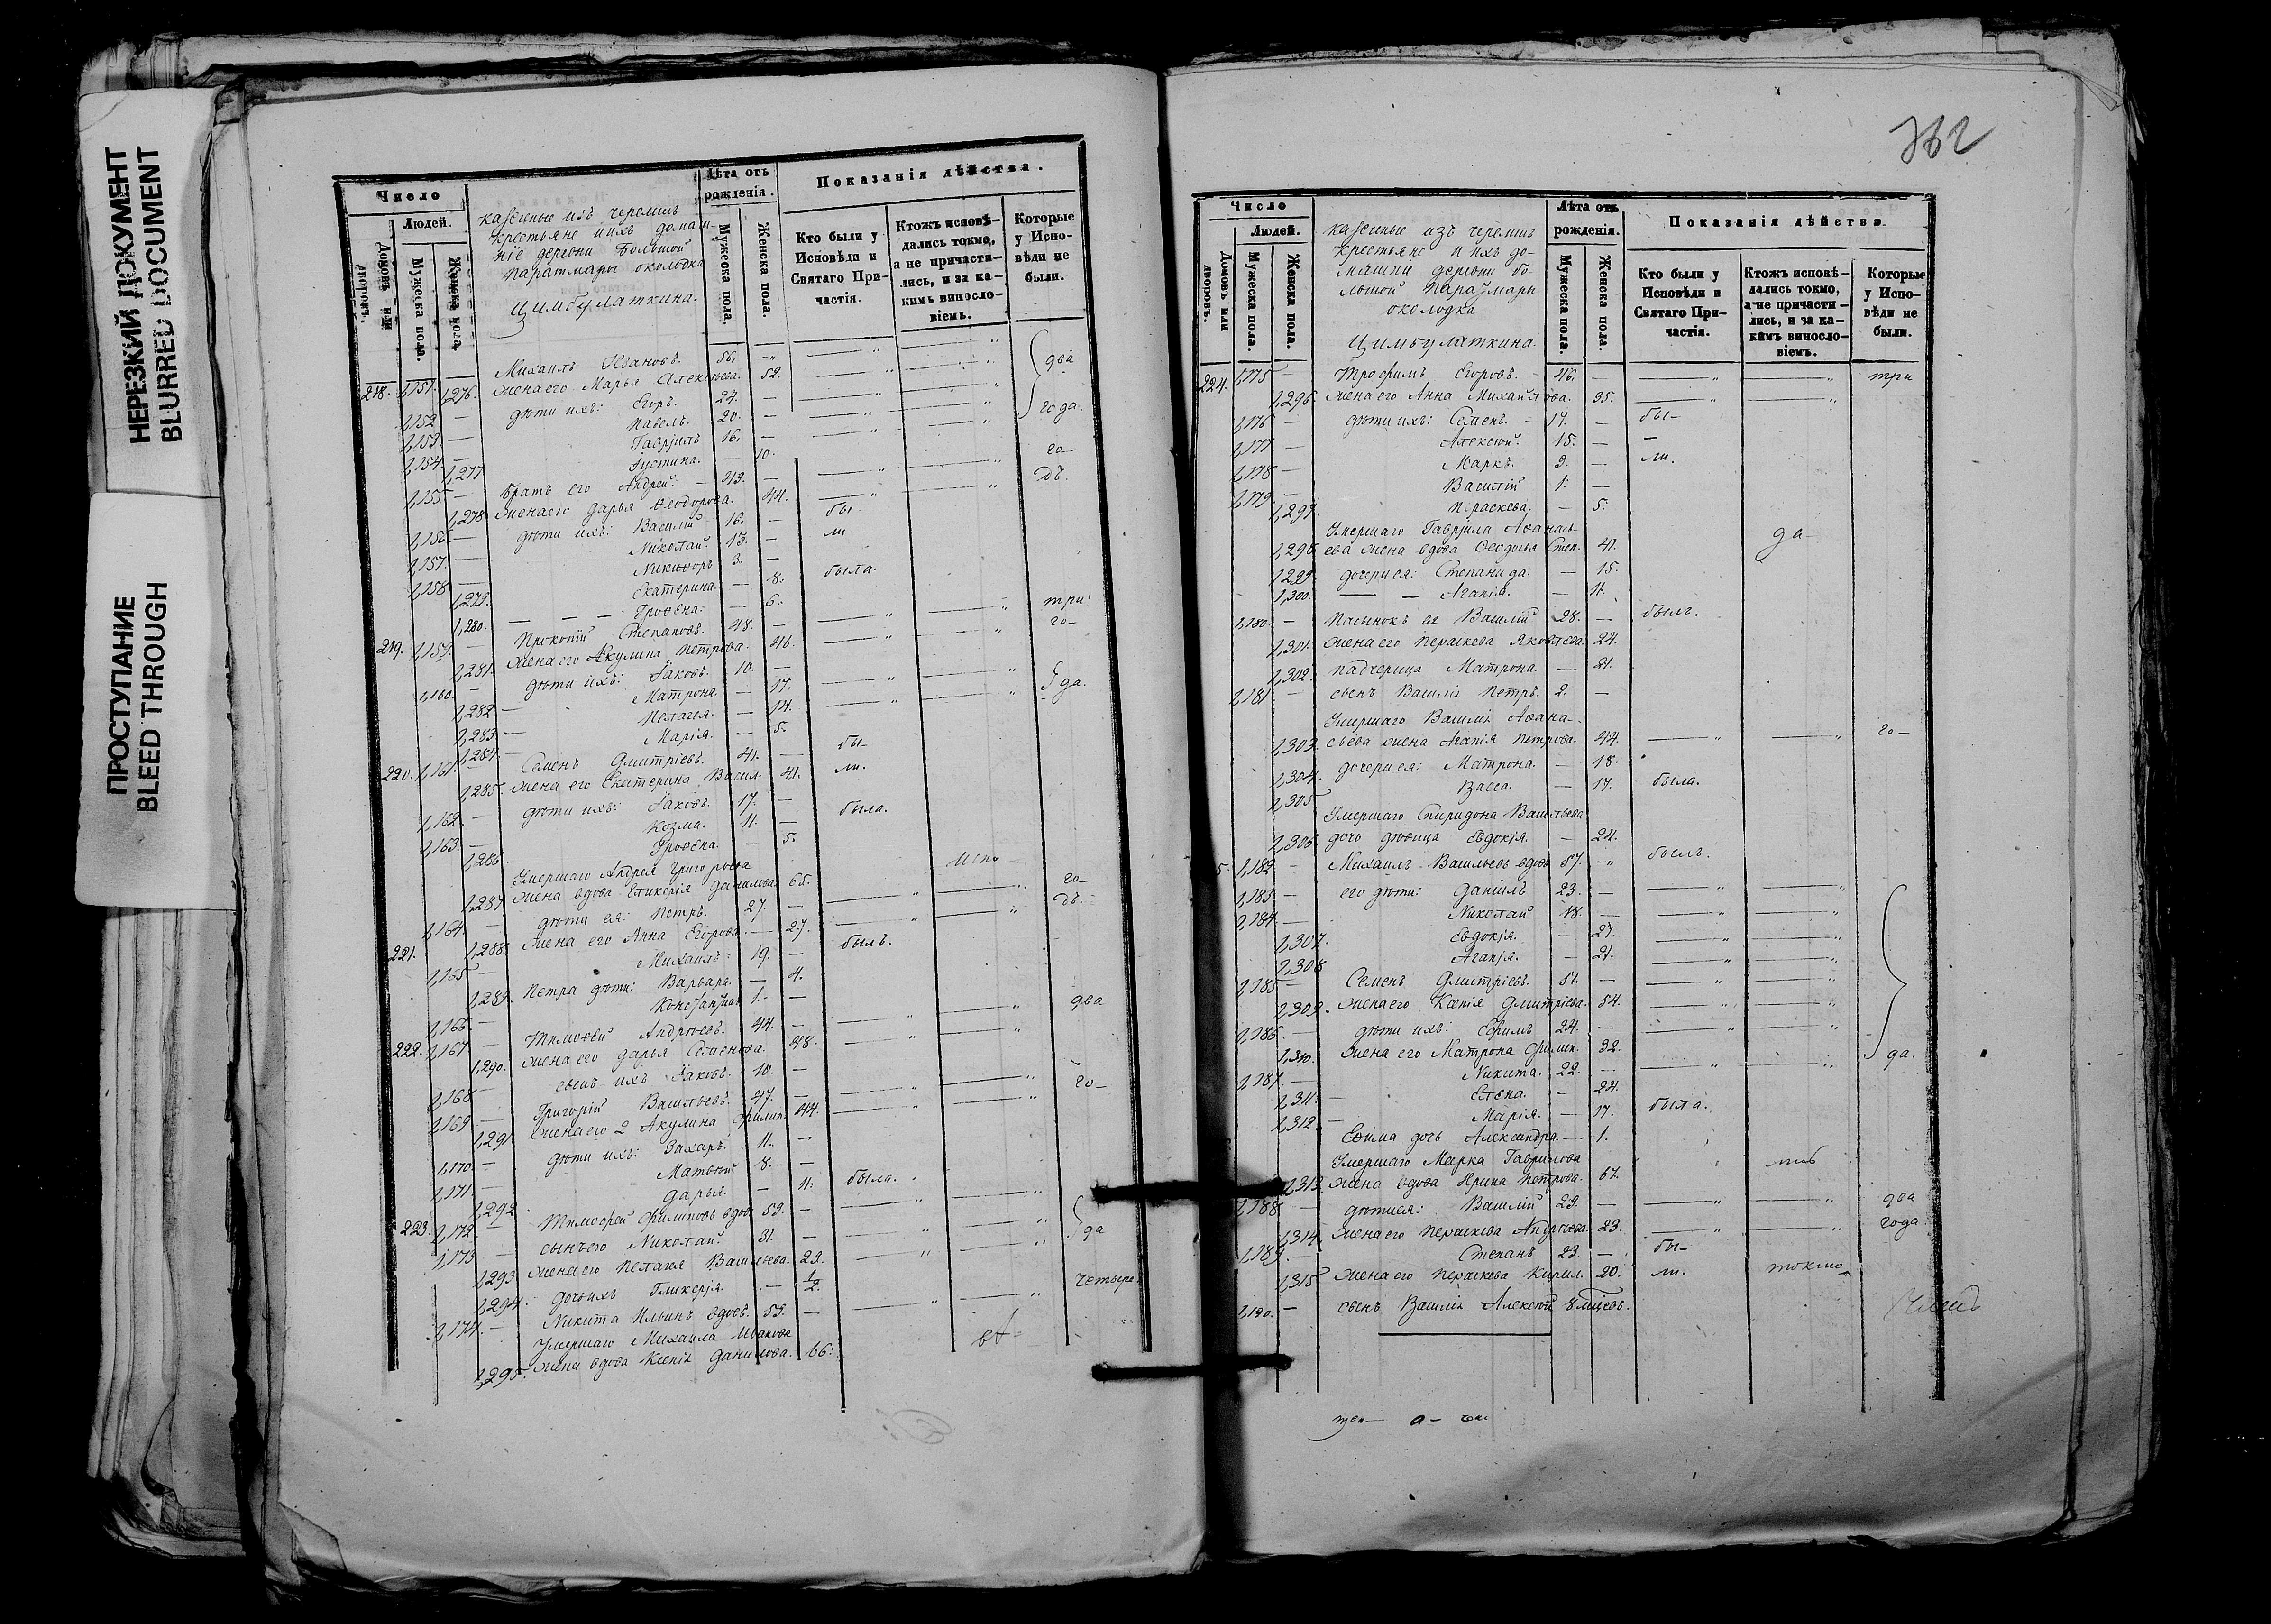 НЕРЕЗКИЙ ДОКУМЕНТ
BLURRED DOCUMENT
ПРОСТУПАНИЕ
BLEED THROUGH
Число
Людей.
Домовъ или дворовъ.
Мужеска пола.
Женска пола.
казенные изъ черемисъ
крестьяне и ихъ домаш-
ніе деревни Большой
Паратмары околодка
Цимбулаткина.
Лѣта отъ рожденія.
Мужеска пола.
Женска пола.
Показанія дѣйства.
Кто были у Исповѣди и Святаго Причастія.
Ктожъ исповѣдались токмо, а не причастились, и за какимъ винословіемъ.
Которые у Исповѣди не были.
218. 1,151. Михаилъ Ивановъ. 56. два
1,276. жена его Марья Алексѣева. 52.
1,152 — дѣти ихъ: Егоръ. 24. —
1,153 — Павелъ. 20. — года.
1,154. — Гаврилъ 16. —
1,277 Іустина. — 10. го-
1,155 — братъ его Андрей. — 49. — дъ.
1,278 жена его Дарья Ѳеодорова. 44.
1,156 — дѣти ихъ: Василій 16. — бы
1,157. — Николай. 13. — ли
1,158 — Никифоръ 3. —
1,279. Екатерина. — 8. была.
1,280. Трофена. — 6.
219. 1,159. — Прокопій Степановъ. 48. — три
1,281. жена его Акулина Петрова. 46. го-
1,160. — дѣти ихъ: Іаковъ. 10. —
1,282 — Матрона. — 17. да.
1,283 — Пелагея. — 14.
1,284 — Марія. — 5.
220. 1,161. — Семенъ Дмитріевъ. 41. — бы-
1,285. жена его Екатерина Васил. 41. ли.
1,162 — дѣти ихъ: Іаковъ. 17. —
1,163. — Козма. 11. — была.
1,286. Трофена. — 5.
Умершаго Андрея Григорьева
1,287 жена вдова Гликерія Данилова. 65. го-
1,164. — дѣти ея: Петръ. 27. — дъ.
221. 1,288. жена его Анна Егорова. — 27.
1,165 — Михаилъ 19. — былъ.
1,289. Петра дѣти: Варвара. — 4.
1,166. — 1. —
222. 1,167 — Тимофей Андреевъ. 44. — два
1,290. жена его Дарья Семенова. 48.
1,168 — сынъ ихъ Іаковъ. 10. —
1,169 — Григорій Васильевъ. 47. — го-
1,291 жена его 2 Акулина Филип. 44.
1,170. — дѣти ихъ: Захаръ. 11. —
1,171. — Матвѣй 8. —
1,292 Дарья. — 11. была.
223. 1,172 — Тимофей Филиповъ вдов. 59. —
1,173 — сынъ его Николай. 31. — да
1,293 жена его Пелагея Васильева. 29.
1,294. дочь ихъ Гликерія. — 1/2. четыре
1,174. — Никита Ильинъ вдовъ. 59. —
Умершаго Михаила Иванова
1,295. жена вдова Ксенія Данилова. 66.
Число
Людей.
Домовъ или дворовъ.
Мужеска пола.
Женска пола.
казенные изъ черемисъ
крестьяне и ихъ до-
машни деревни бо-
льшой Паратмары
околодка
Цимбулаткина.
Лѣта отъ рожденія.
Мужеска пола.
Женска пола.
Показанія дѣйства.
Кто были у Исповѣди и Святаго Причастія.
Ктожъ исповѣдались токмо, а не причастились, и за какимъ винословіемъ.
Которые у Исповѣди не были.
224. 1,175 — Трофимъ Егоровъ. 46. — три
1,296. жена его Анна Михайлова. 35.
1,176 — дѣти ихъ: Семенъ. — 17. — бы-
1,177 — Алексѣй. 15. —
1,178 — Маркъ. 9. — ли.
1,179 — Василій 1. —
1,297. Параскева. — 5.
Умершаго Гаврила Аѳанась-
1,298 ева жена вдова Ѳеодосья Степ. 47. да-
1,299. дочери ея: Степанида. — 15.
1,300. Агапія. — 11.
1,180 — Пасынокъ ея Василій 28. — былъ.
1,301. жена его Параскева Яковлева. 24.
1,302. падчерица Матрона. — 21.
1,181 — сынъ Василія Петръ. 2. —
Умершаго Василія Аѳана-
1,303. сьева жена Агапія Петрова. 44. го-
1,304. дочери ея: Матрона. — 18.
1,305 Васса. — 17. была.
Умершаго Спиридона Васильева
1,306 дочь дѣвица Евдокія. — 24.
5. 1,182 — Михаилъ Васильевъ вдовъ 57. былъ.
1,183 — его дѣти: Даніилъ 23. —
1,184. — Николай 18. —
1,307. Евдокія. — 27.
1,308 Агапія. — 21.
1,185 — Семенъ Дмитріевъ. 51. —
1,309. жена его Ксенія Дмитріева. 54.
1,186. — дѣти ихъ: Ефимъ 24. —
1,310. жена его Матрона Филип. 32. да.
1,187 — Никита. 22. —
1,311. — Елена. — 24.
1,312. — Марія. — 17. была.
Ефима дочь Александра. — 1.
Умершаго Марка Гаврилова
1,313. жена вдова Ирина Петрова. 67.
1,188 — дѣти ея: Василій 29. — два
1,314. жена его Параскева Андреева. 23. года
1,189. — Степанъ 23. — бы-
1,315 жена его Параскева Кирил. 20. ли. токмо
1,190. — сынъ Василія Алексѣй 8 мѣсяцевъ.